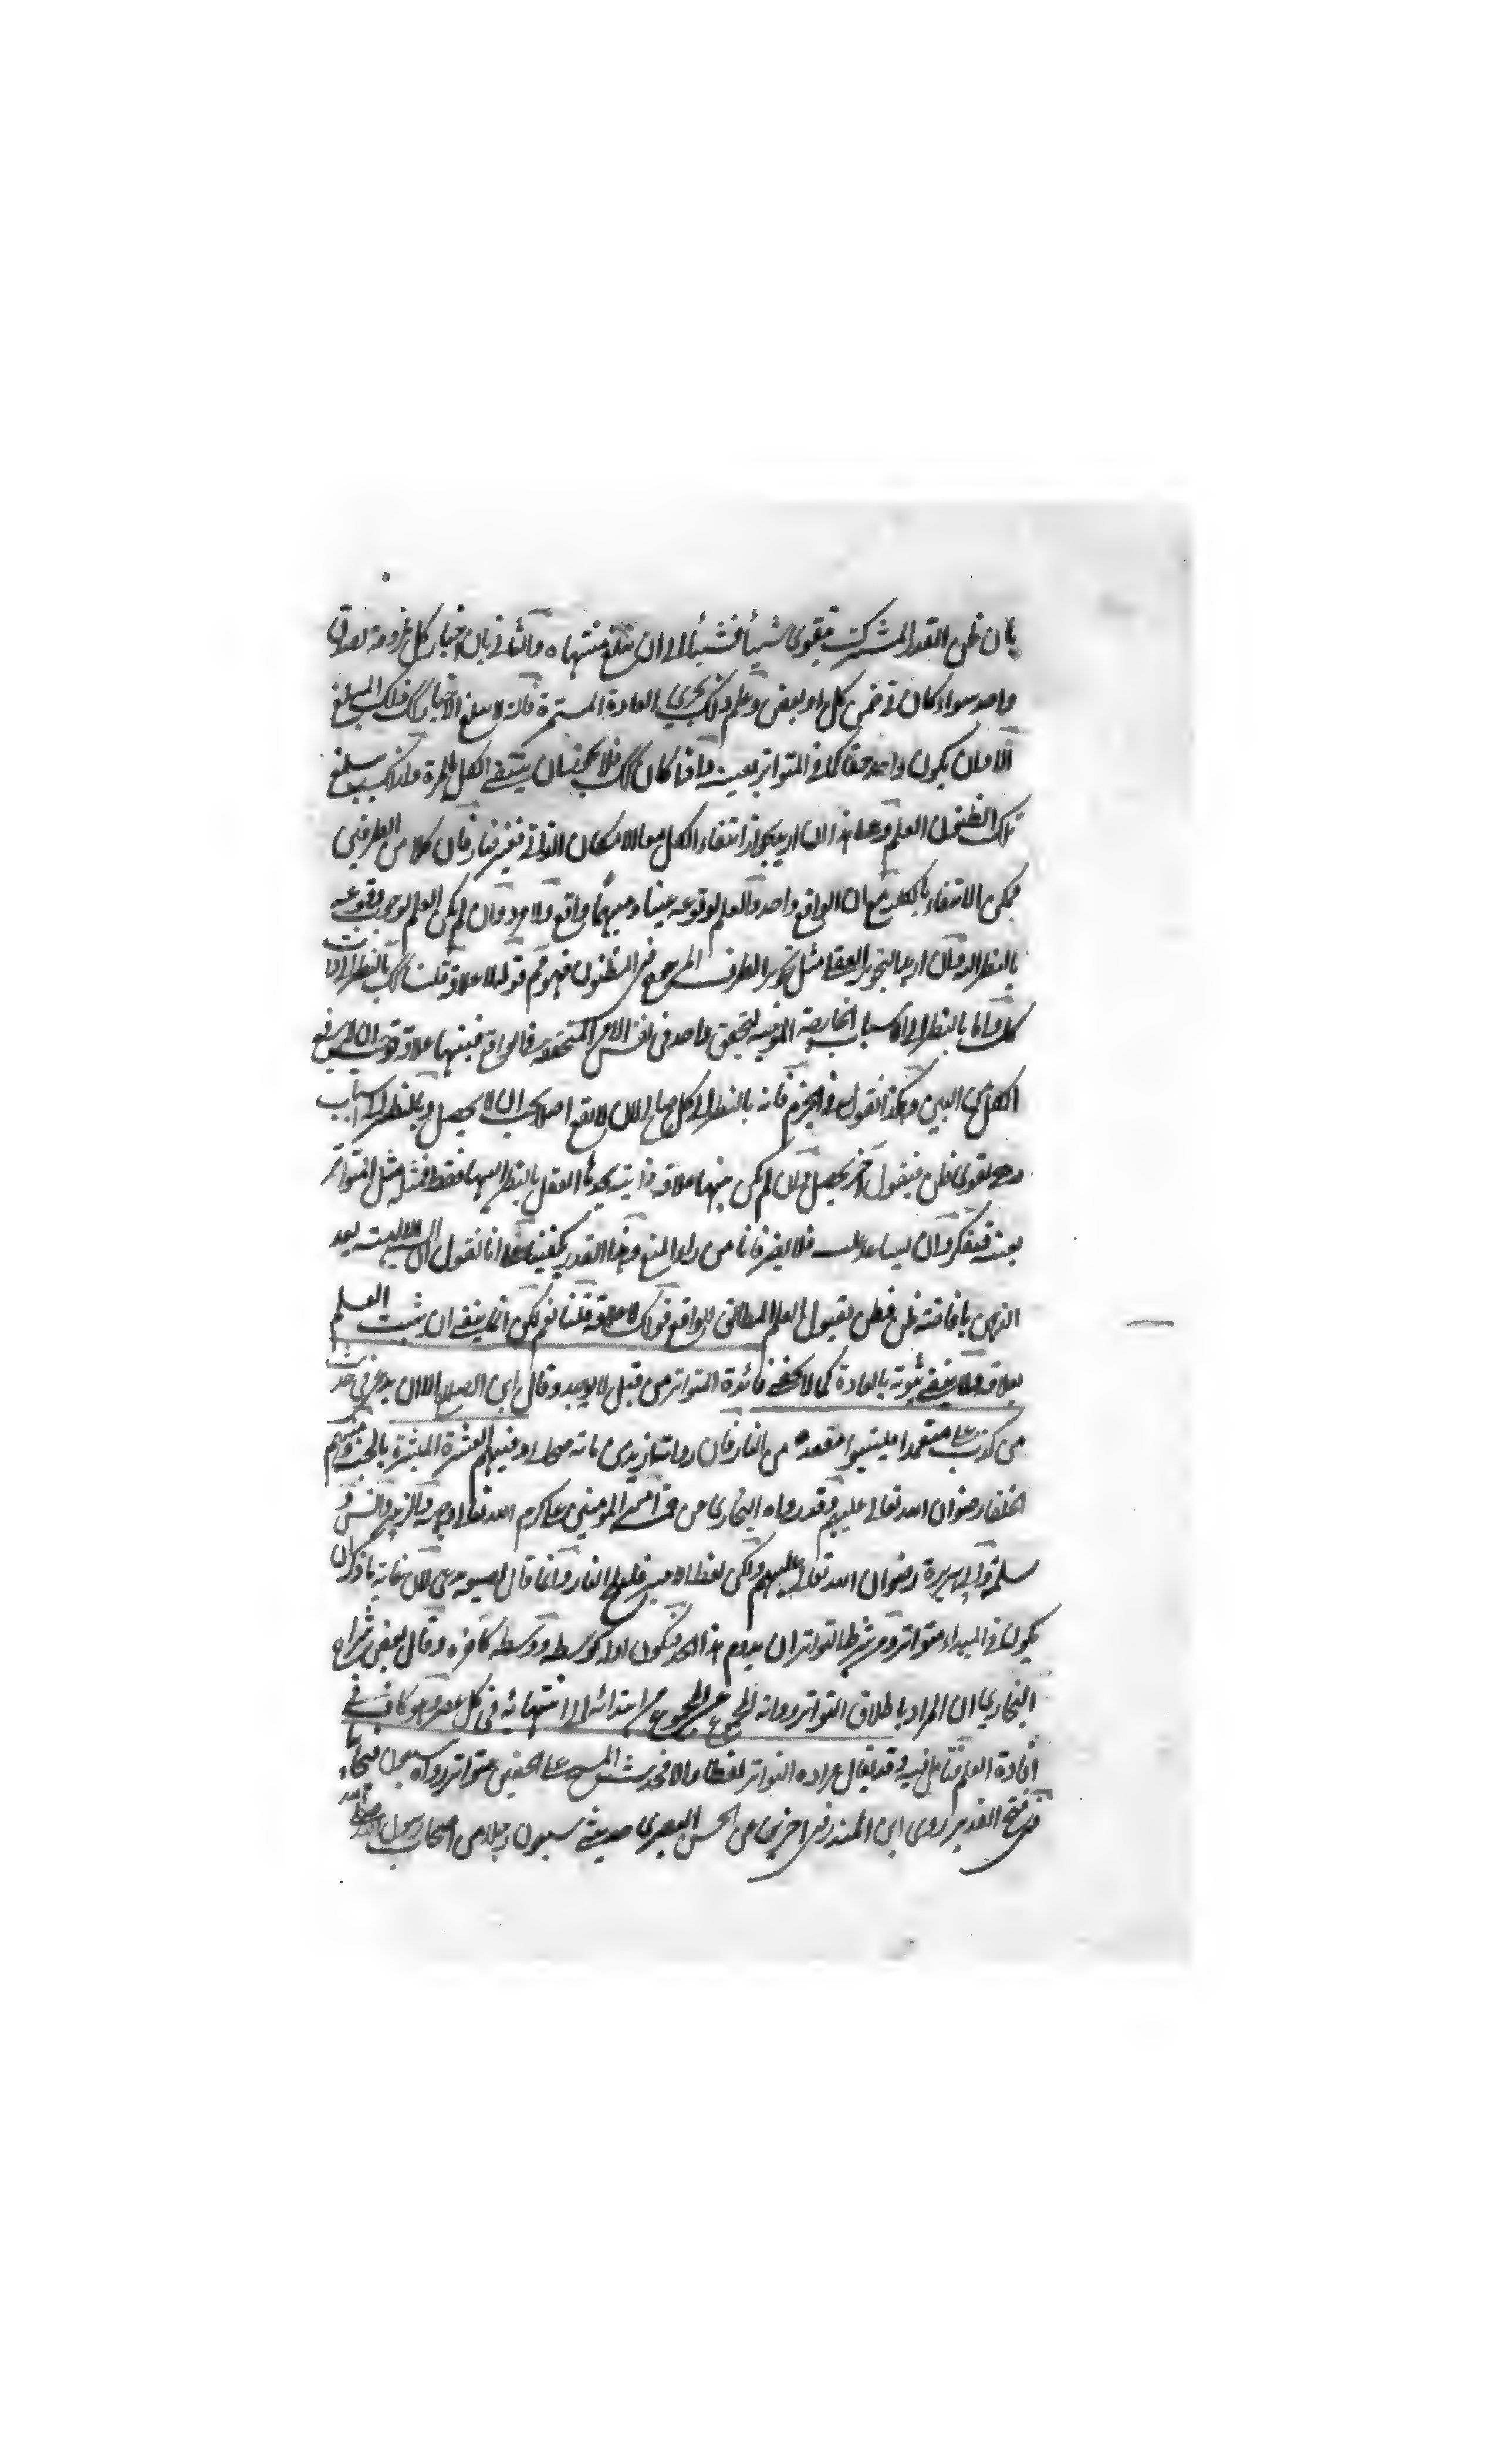 بان ظن القدر المشترك يتقوى شيأ فشيئا الى ان يبلغ منتهاه والثانى بان اخبار كل
واحد سواء كان فى ضمن كل او بعض وعلم ذلك بجرى العادة المستمرة فانه لا يبلغ الاخبار ذلك المبلغ
الا وان يكون واحد حقا كما فى المتواتر بعينه واذا كان كك فلا يمكن ان ينتفى الكل بالمرة
تلك الظنون العلم وعلى هذا ان اريد بجواز انتفاء الكل معا الامكان الذاتى فغير ضار فان كلا من الطرفين
ممكن الانتفاء بالكلية مع ان الواقع واحد والعلم بوقوعه عينا ومبهما واقع ولا مرد وان لم يكن العلم لوجوب وقوعه
بالنظر اليه وان اريد التجويز العقلى مثل تجويز الطرف المرجوح فى المظنون فهو مم قوله لا علاقة قلنا كك بالنظر الى ذات
كل واما بالنظر الى الاسباب الخارجة الموجبة لتحقق واحد فى نفس الامر المتحققة فى الواقع فبينها علاقة توجب ان لا يرتفع
الكل من البين وهكذا نقول فى الجزم فانه بالنظر الى كل صالح لان لا يقع اصلا يجب ان لا يحصل وبالنظر الى اسباب
فنقول يحصل وان لم يكن بينها علاقة ذاتية يجدها العقل بالنظر اليها فقط فمثله مثل المتواتر
بعينه فتفكر وان لم يساعدك فلا يضر فانا من وراء المنع وهذا القدر يكفينا على انا نقول ان
الذهن بافاضة ظن فظن لقبول العلم المطابق للواقع قولك لا علاقة قلنا نعم لكن انما ينفى ان يثبت العلم
بعلاقة ولا ينفى ثبوته بالعادة كما لا يخفى فائدة المتواتر من قبل لا يوجد وقال ابن الصلاح الا ان يدعى فى حديث
من كذب على متعمدا فليتبوأ مقعده من النار فان رواته ازيد من مائة صحابى وفيهم العشرة المبشرة بالجنة ومنهم
الخلفاء رضوان الله تعالى عليهم وقد رواه البخارى عن امير المؤمنين على كرم الله تعالى وجهه والزبير وانس و
سلمة وابى هريرة رضوان الله تعالى عليهم ولكن لفظ الامير فليلج النار وانما قال لان غاية ما ذكر ان
يكون فى المبدأ متواترا ومن شرط التواتر ان يدوم هذا الحد فيكون اوله كوسطه ووسطه كآخره وقال بعض شراح
البخارى ان المراد باطلاق التواتر رواية المجموع عن المجموع من ابتدائه الى انتهائه فى كل عصر وهو كاف فى
افادة العلم فتأمل فيه وقد يقال مراده التواتر لفظا والا فحديث المسح على الخفين متواتر رواه سبعون صحابيا
فى فتح القدير روى ابن المنذر فى آخرين عن الحسن البصرى حدثنى سبعون رجلا من اصحاب رسول الله صلى الله